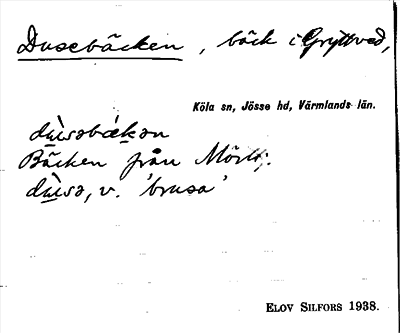 Dusebäcken, bäck i Gryttved,
Köla sn, Jösse hd, Värmlands län.
dùsəbækən
Bäcken från
dùsə, v. 'brusa'
ELOV SILFORS 1938.